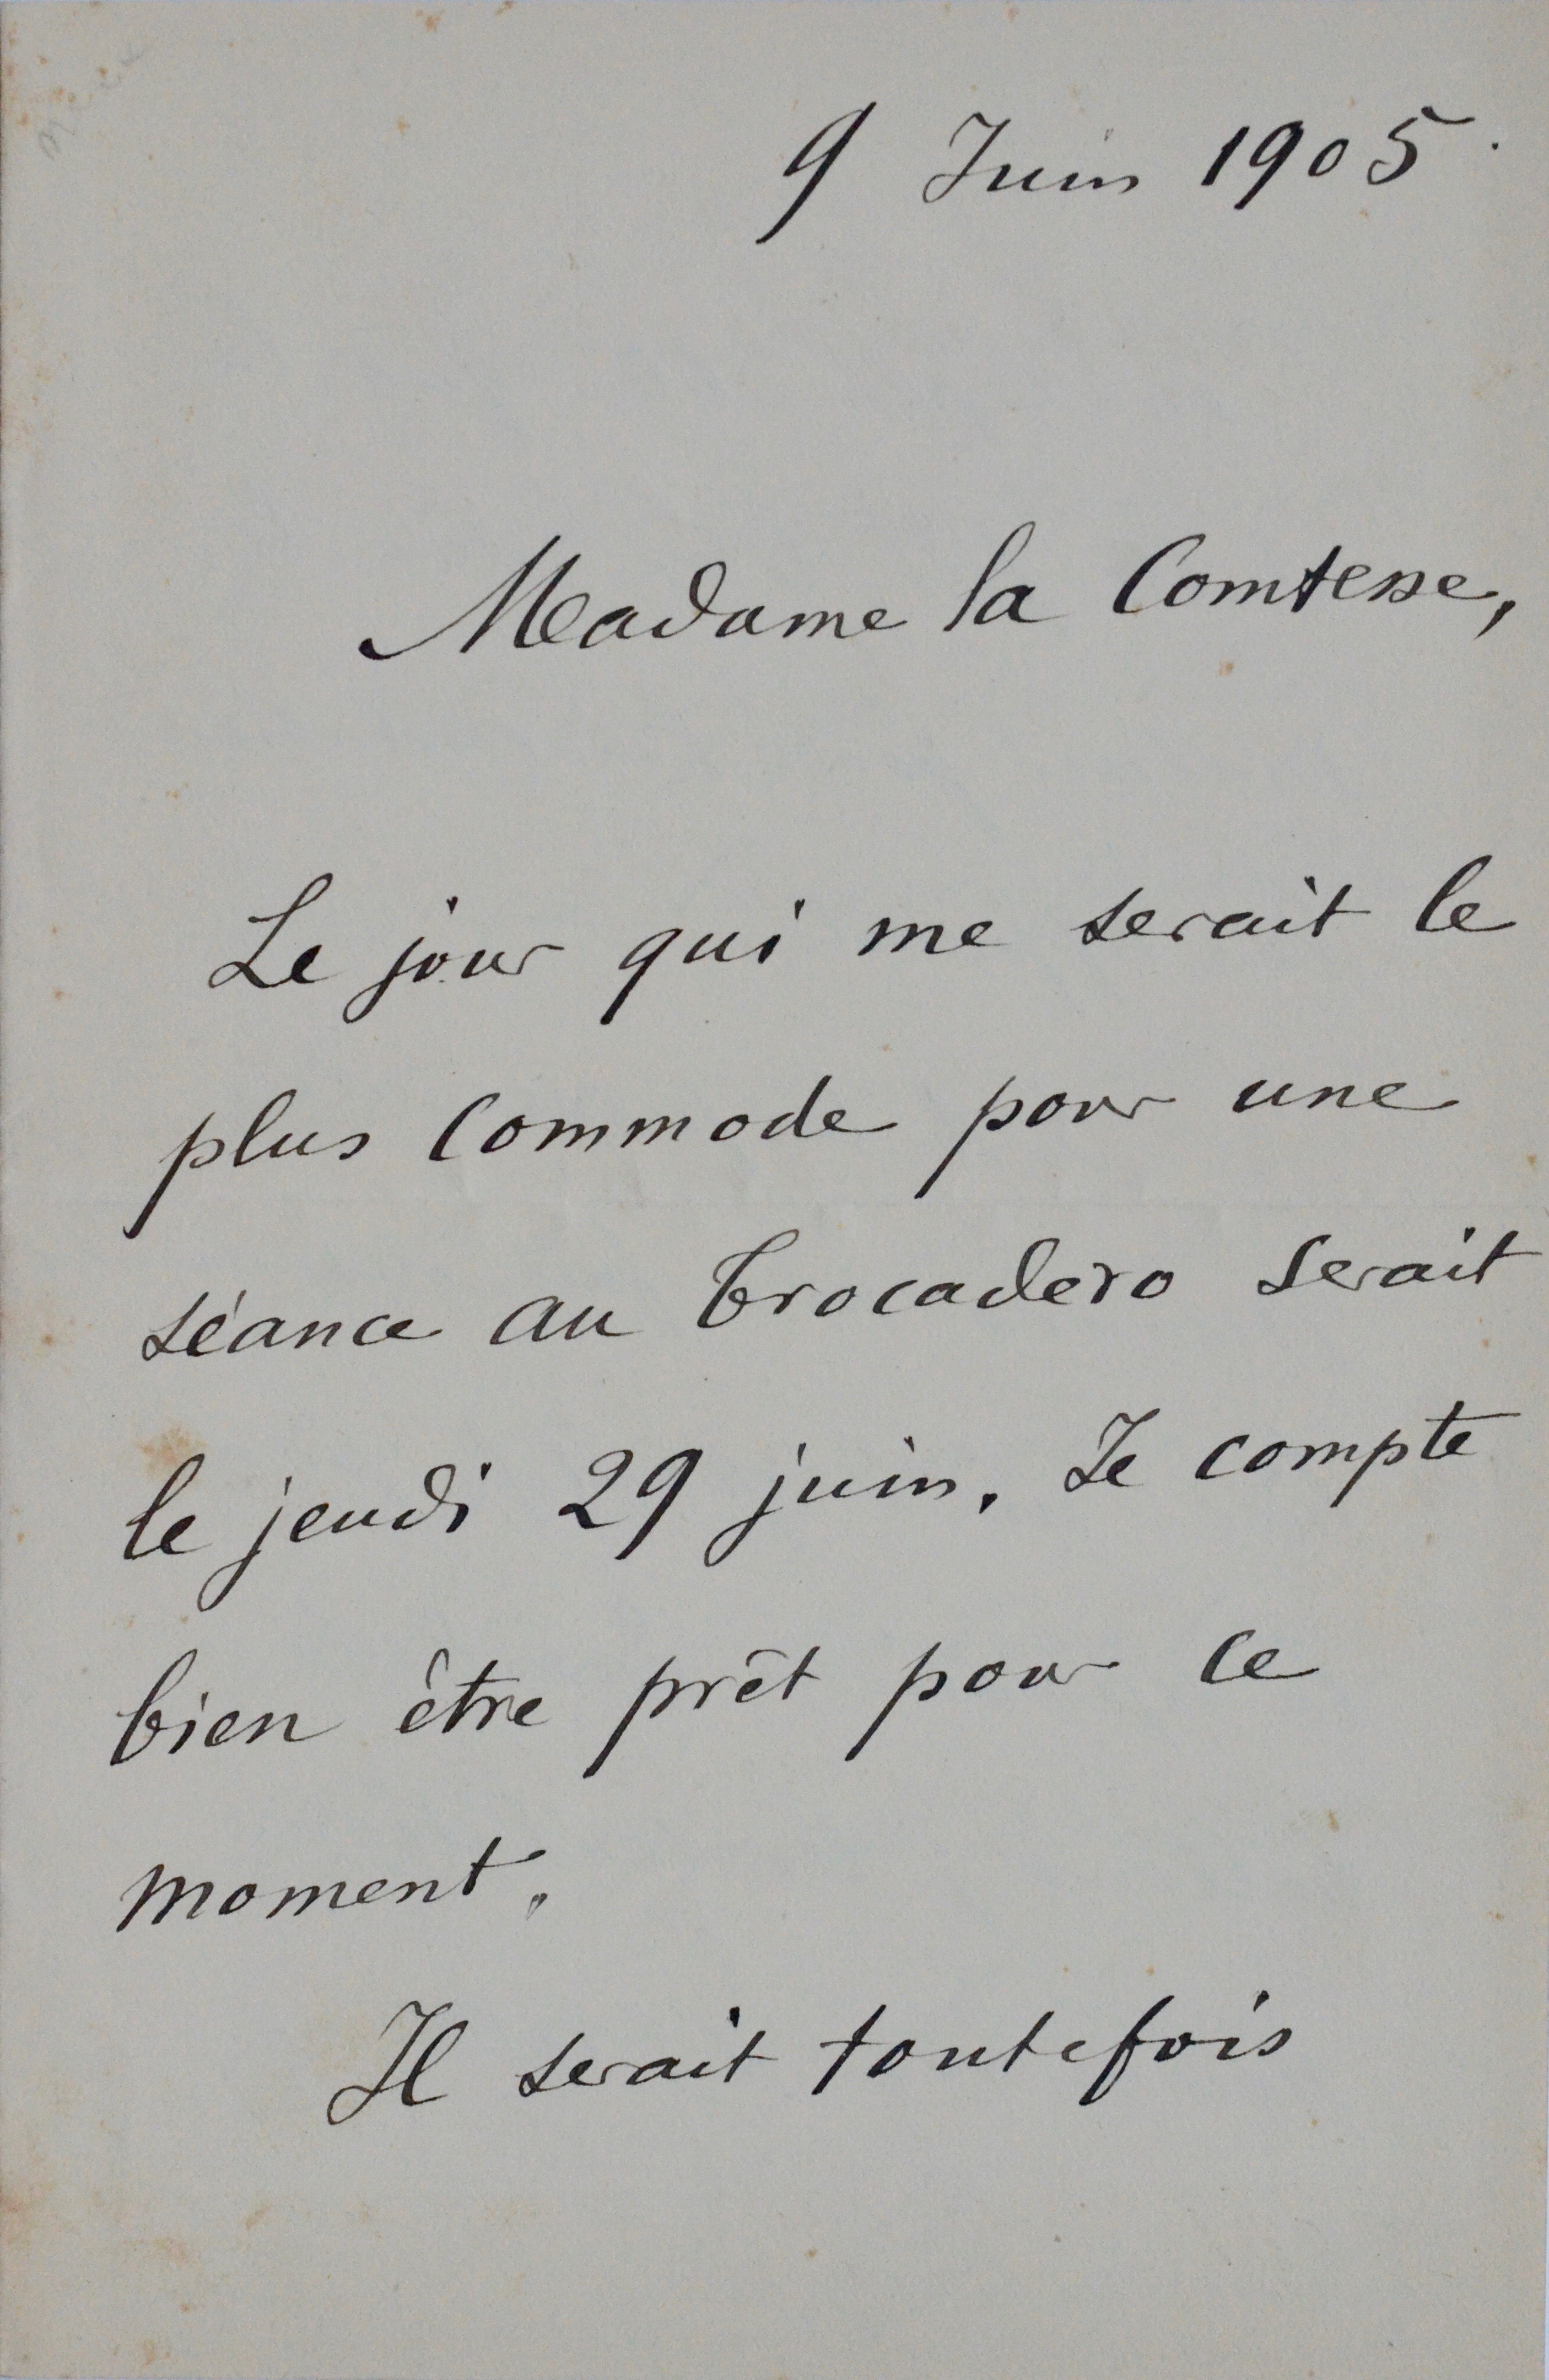 9 Juin 1905.
Madame la Comtesse,
Le jour qui me serait le
plus commode pour une
séance au Trocadero serait
le jeudi 29 juin. Je compte
bien être prêt pour ce
moment.
Il serait toutefois